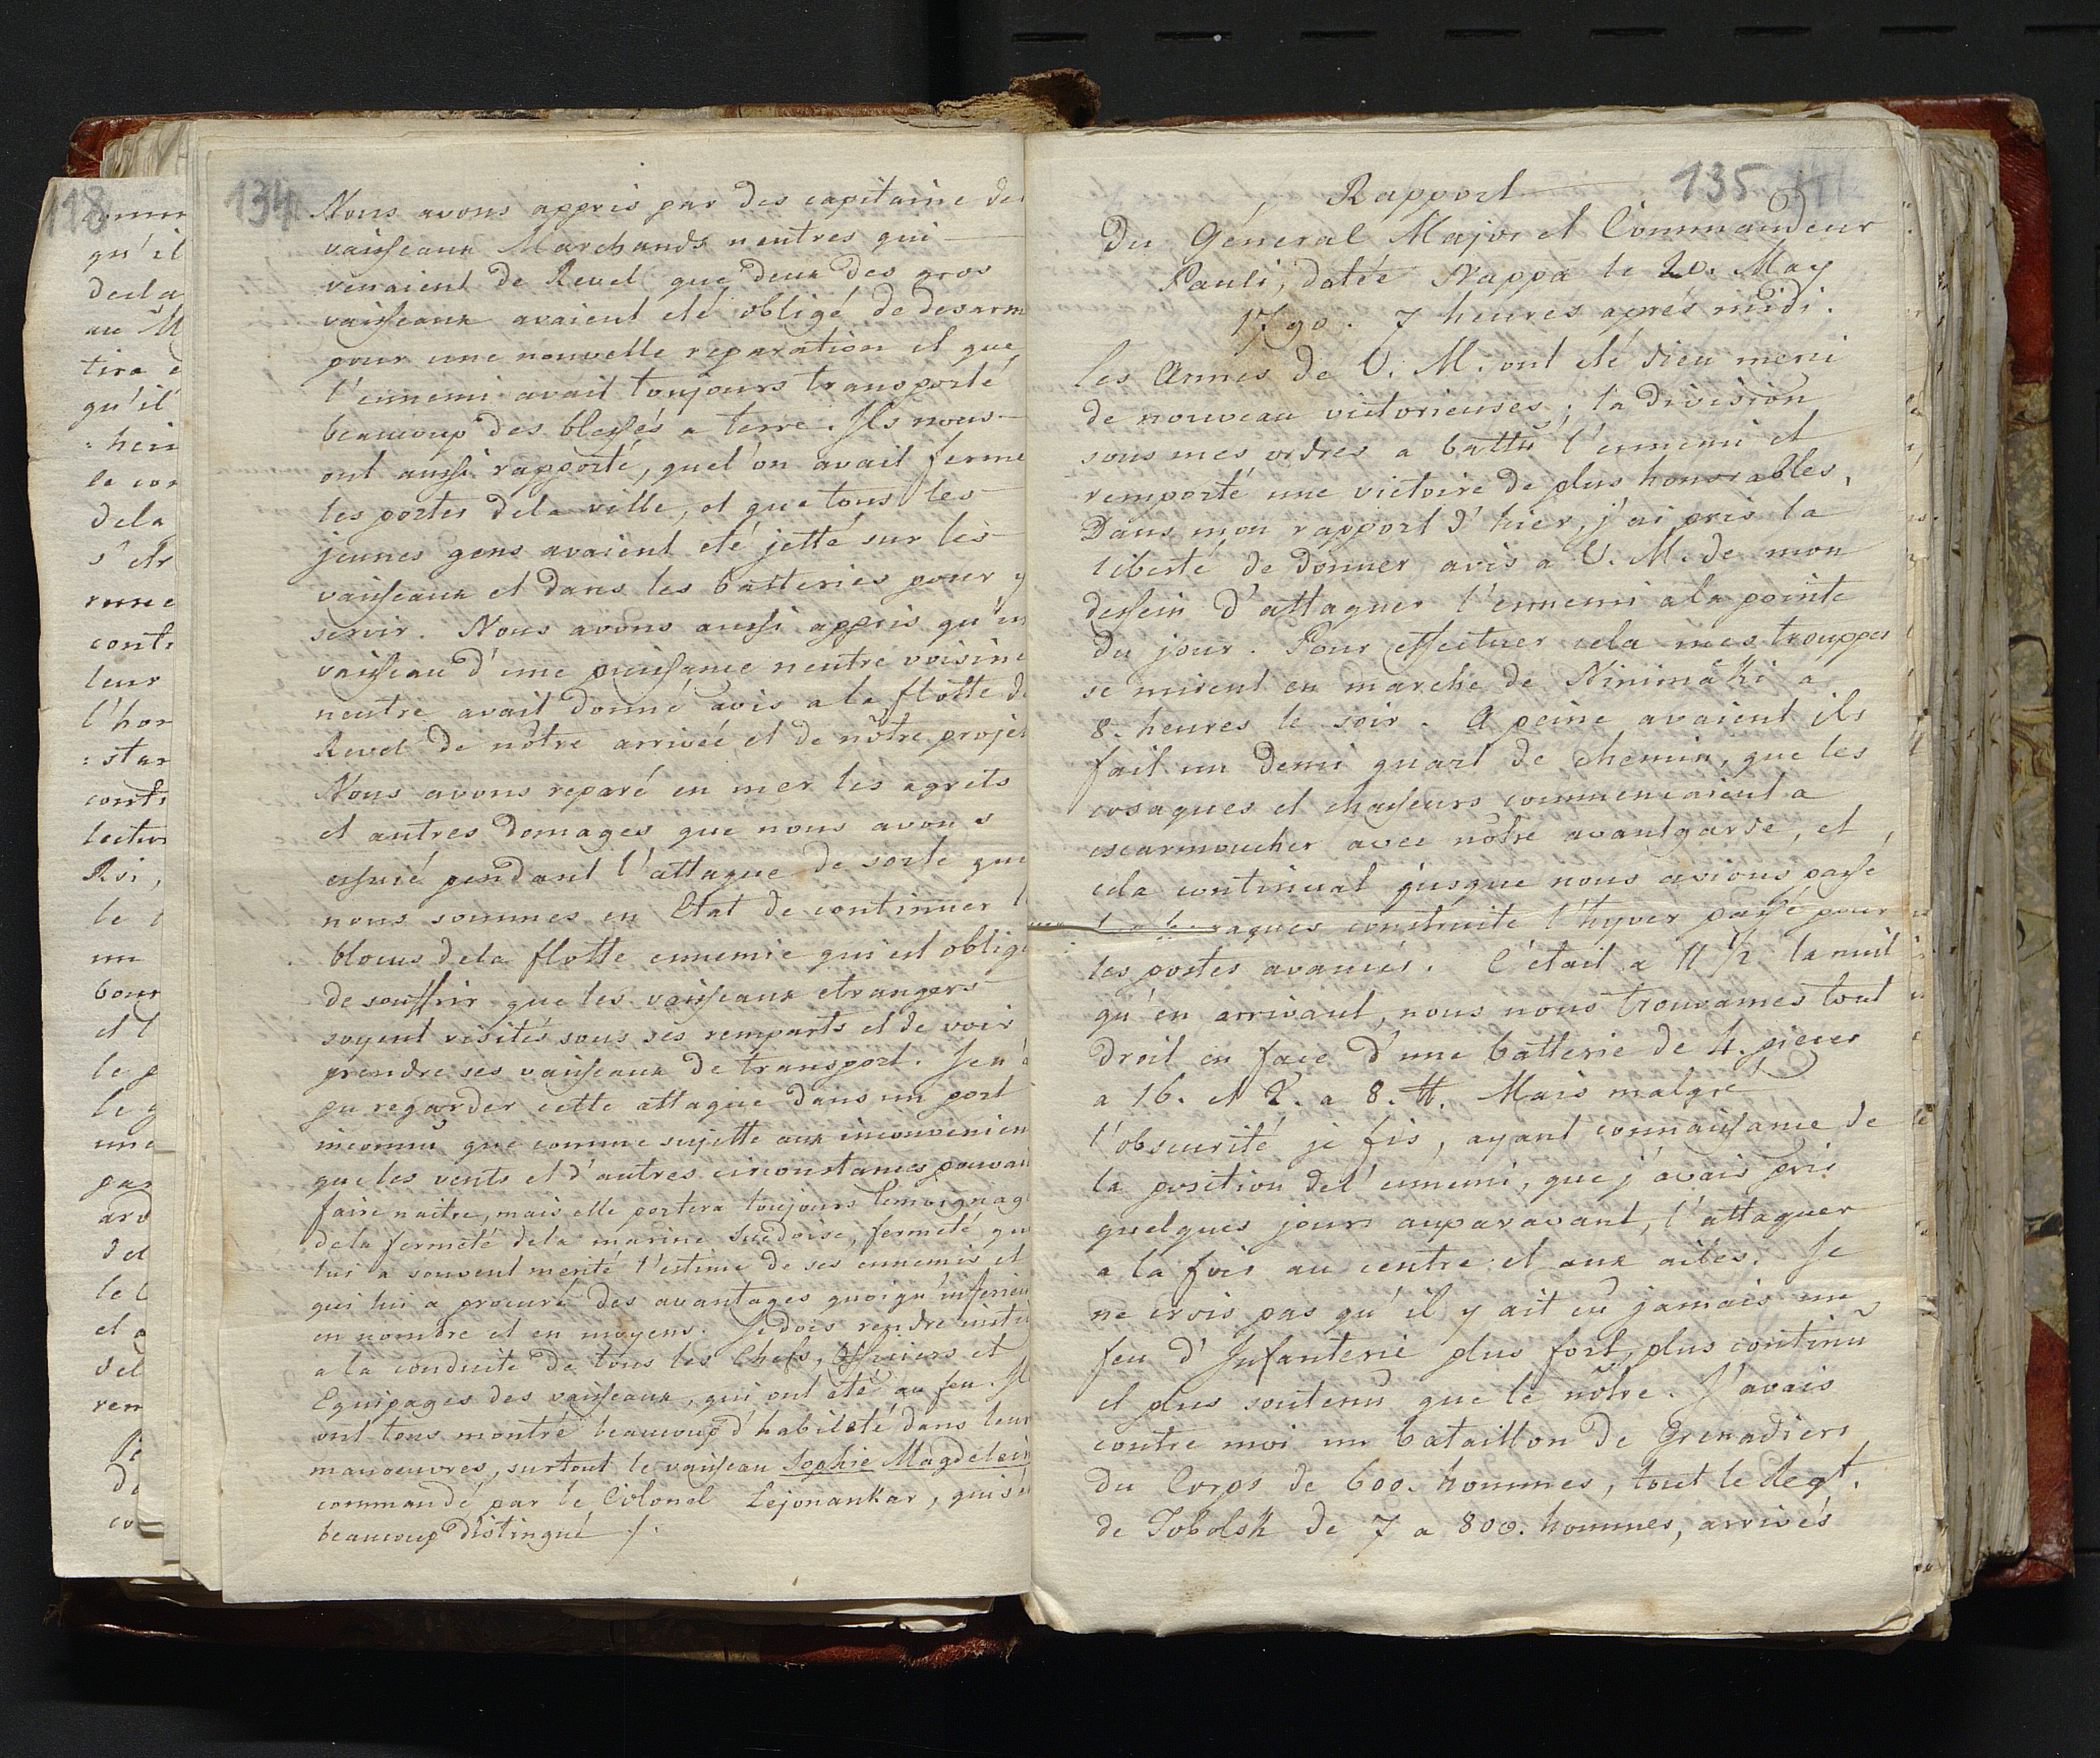 118
qu'il
decla
au M
tira e
qu'il
: hein
le cor
dela
s'etr
rune
contr
leur
l'hon
: star
contr
lectur
Roi,
le
un
bour
et l
le p
le g
une
par
aro
del
le l
et a
del
rem
de
co
134
Nous avons appris par des capitaine des
vaisseaux Marchands neutres qui
venaient de Revel que deux des gros
vaisseaux avaient eté obligé de desarm
pour une nouvelle reparation et que
l'ennemi avait toujours transporté
beaucoup des blessés a terre. Ils nous
ont aussi rapporté, quel'on avait ferme
les portes dela ville, et que tous les
jeunes gens avaient eté jetté sur les
vaisseaux et dans les batteries pour y
servir. Nous avons aussi appris qu'un
vaisseau d'une puissance neutre voisine
neutre avait donné avis a la flotte de
Revel de nôtre arrivée et de nôtre projet
Nous avons reparé en mer les agrets
et autres domages que nous avons
essuié pendant l'attaque de sorte que
nous sommes en Etat de continuer l
blocus dela flotte ennemie qui est oblige
de souffrir que les vaisseaux etrangers
soyent visités sous ses remparts et de voir
prendre ses vaisseaux de transport. Je n'
pu regarder cette attaque dans un port
inconnu que comme sujette aux inconvenien
que les vents et d'autres circonstances pouvai
faire naitre, mais elle portera toujours temoignag
dela fermeté dela marine Suedoise, fermeté qui
lui a souvent merité l'estime de ses ennemis et
qui lui a procuré des avantages quoiqu'inferieu
en nombre et en moyens. Je dois rendre justi
a la conduite de tous les Chefs, Officiers et
Equipages des vaisseaux, qui ont eté au feu. Il
ont tous montré beaucoup d'habileté dans leur
manoeuvres, surtout le vaisseau Sophie Magdelein
commandé par le Colonel Lejonankar, qui s'
beaucoup distingué /.
135
Rapport
Du Géneral Major et Commandeur
Pauli, datée Nappa le 20. May
1790. 7 heures aprés midi.
Les Armes de V. M. ont eté Dieu merci
de nouveau victorieuses; la division
sous mes ordres a battu l'ennemi et
remporté une victoire de plus honorables,
Dans mon rapport d'hier, j'ai pris la
liberté de donner avis a V. M. de mon
dessein d'attaquer l'ennemi a la pointe
du jour. Pour effectuer cela mes trouppes
se mirent en marche de Ninimäki a
8. heures le soir. A peine avaient ils
fait un demi quart de chemin, que les
cosaques et chasseurs commencaient a
escarmoucher avec nôtre avantgarde, et
cela continuat jusque nous avions passé
raques construite l'hyver passé pour
les postes avancés. C'etait a 11 1/2 la nuit
qu'en arrivant, nous nous trouvames tout
droit en face d'une batterie de 4. pieces
a 16. et 2. a 8. ℔. Mais malgré
l'obscurité je fis, ayant connaissance de
la position del'ennemi, que j'avais pris
quelques jours auparavant, l'attaquer
a la fois au centre et aux ailes. Je
ne crois pas qu'il y ait eu jamais un
feu d'Infanterie plus fort, plus continu
et plus soutenu que le nôtre. J'avais
contre moi un bataillon de Grenadiers
du Corps de 600. hommes, tout le Regt.
de Tobolsk de 7 a 800. hommes, arrivés